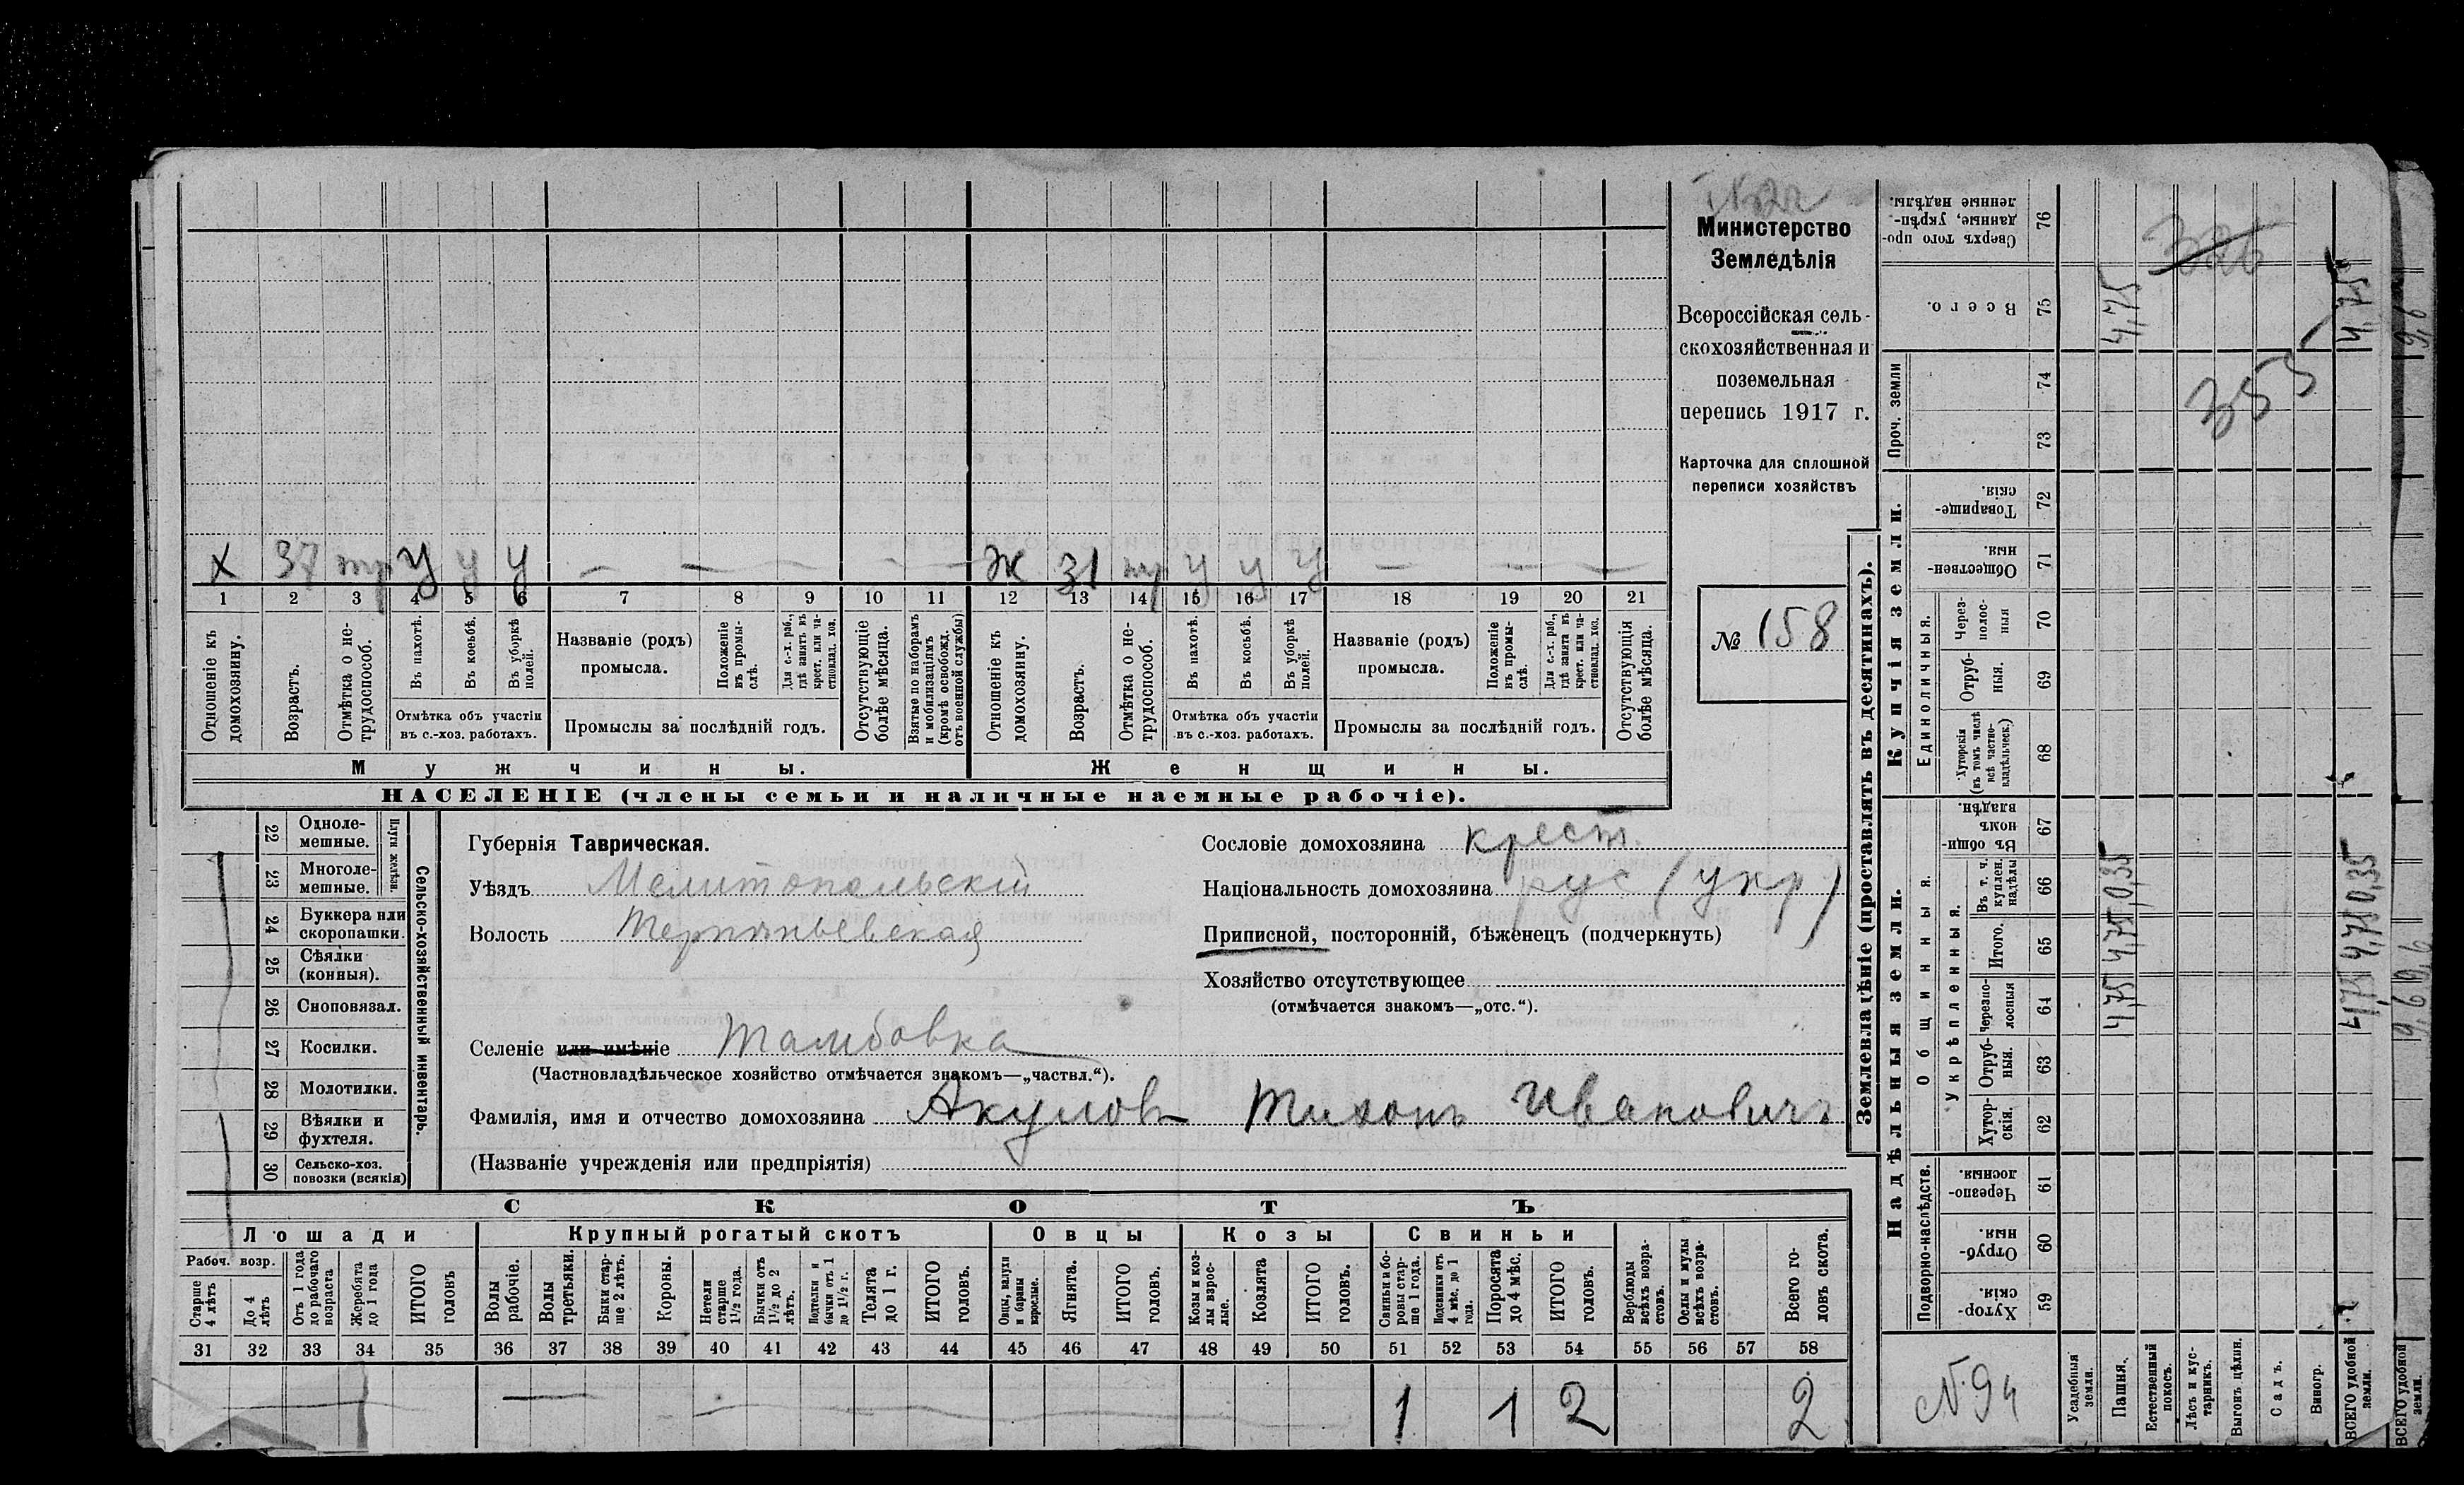 Министерство
Земледѣлія
Всероссійская сель-
скохозяйственная и
поземельная
перепись 1917 г.
Карточка для сплошной
переписи хозяйствъ
№ 158
х 37 тр у у у — — — — — ж 31 тр у у у — — —
1 2 3 4 5 6 7 8 9 10 11 12 13 14 15 16 17 18 19 20 21
Отношеніе къ домохозяину.
Возрастъ.
Отмѣтка о не-трудоспособ.
Въ пахотѣ.
Въ косьбѣ.
Въ уборкѣ полей.
Отмѣтка объ участіи
въ с.-хоз. работахъ.
Названіе (родъ)
промысла.
Положеніе въ промы-слѣ.
Для с.-х. раб., гдѣ занятъ въ крест. или ча-стновлад. хоз.
Промыслы за послѣдній годъ.
Отсутствующіе болѣе мѣсяца.
Взятые по наборамъ и мобилизаціямъ (кромѣ освобожд. отъ военной службы)
Отношеніе къ домохозяину.
Возрастъ.
Отмѣтка о не-трудоспособ.
Въ пахотѣ.
Въ косьбѣ.
Въ уборкѣ полей.
Отмѣтка объ участіи
въ с.-хоз. работахъ.
Названіе (родъ)
промысла.
Положеніе въ промы-слѣ.
Для с.-х. раб., гдѣ занята въ крест. или ча-стновлад. хоз.
Промыслы за послѣдній годъ.
Отсутствующія болѣе мѣсяца.
Мужчины. Женщины.
НАСЕЛЕНІЕ (члены семьи и наличные наемные рабочіе).
Сельско-хозяйственный инвентарь.
Плуги желѣзн.
22 Одноле-мешные.
23 Многоле-мешные.
24 Буккера или скоропашки.
25 Сѣялки (конныя).
26 Сноповязал.
27 Косилки.
28 Молотилки.
29 Вѣялки и фухтеля.
30 Сельско-хоз. повозки (всякія)
Губернія Таврическая.
Уѣздъ Мелитопольскій
Волость Терпѣньевская
Селеніе или имѣніе Тамбовка
(Частновладѣльческое хозяйство отмѣчается знакомъ—„частвл.“).
Фамилія, имя и отчество домохозяина Акуловъ Тихонъ Ивановичъ
(Названіе учрежденія или предпріятія)
Сословіе домохозяина крест.
Національность домохозяина рус (укр)
Приписной, посторонній, бѣженецъ (подчеркнуть)
Хозяйство отсутствующее
(отмѣчается знакомъ—„отс.“).
СКОТЪ
Лошади Крупный рогатый скотъ Овцы Козы Свиньи
Рабоч. возр.
Старше 4 лѣтъ
До 4 лѣтъ
Отъ 1 года до рабочаго возраста
Жеребята до 1 года
ИТОГО головъ
Волы рабочіе.
Волы третьяки.
Быки стар-ше 2 лѣтъ.
Коровы.
Нетели старше 1½ года.
Бычки отъ 1½ до 2 лѣтъ.
Подтелки и бычки отъ 1 до 1½ г.
Телята до 1 г.
ИТОГО головъ.
Овцы, валухи и бараны взрослые.
Ягнята.
ИТОГО головъ.
Козы и коз-лы взрос-лые.
Козлята
ИТОГО головъ.
Свиньи и бо-ровы стар-ше 1 года.
Подсвинки отъ 4 мѣс. до 1 года.
Поросята до 4 мѣс.
ИТОГО головъ.
Верблюды всѣхъ возра-стовъ.
Ослы и мулы всѣхъ возра-стовъ.
Всего го-ловъ скота.
31 32 33 34 35 36 37 38 39 40 41 42 43 44 45 46 47 48 49 50 51 52 53 54 55 56 57 58
1 1 2 2
Землевладѣніе (проставлять въ десятинахъ).
Надѣльныя земли. Купчія земли. Проч. земли
Подворно-наслѣдств.
Общинныя.
Укрѣпленныя.
Единоличныя.
Хутор-скія. 59
Отруб-ныя. 60
Черезпо-лосныя 61
Хутор-скія. 62
Отруб-ныя. 63
Черезпо-лосныя 64
Итого. 65
Въ т. ч. куплен. надѣлы 66
Въ общи-номъ владѣн. 67
Хуторскія (въ томъ числѣ всѣ частно-владѣльческ.) 68
Отруб-ныя. 69
Через-полос-ныя 70
Обществен-ныя 71
Товарище-скія. 72
73
74
Всего. 75
Сверхъ того про-данные, укрѣп-ленные надѣлы. 76
№94
Усадебныя земли.
Пашня. 4,75 4,75 0,35 4,75
Естественный покосъ.
Лѣсъ и кус-тарникъ.
Выгонъ цѣлин.
Садъ.
Виногр.
ВСЕГО удобной земли. 4,75 4,75 0,35 4,75
326
355
ВСЕГО удобной земли. 9,6 9,6 9,6